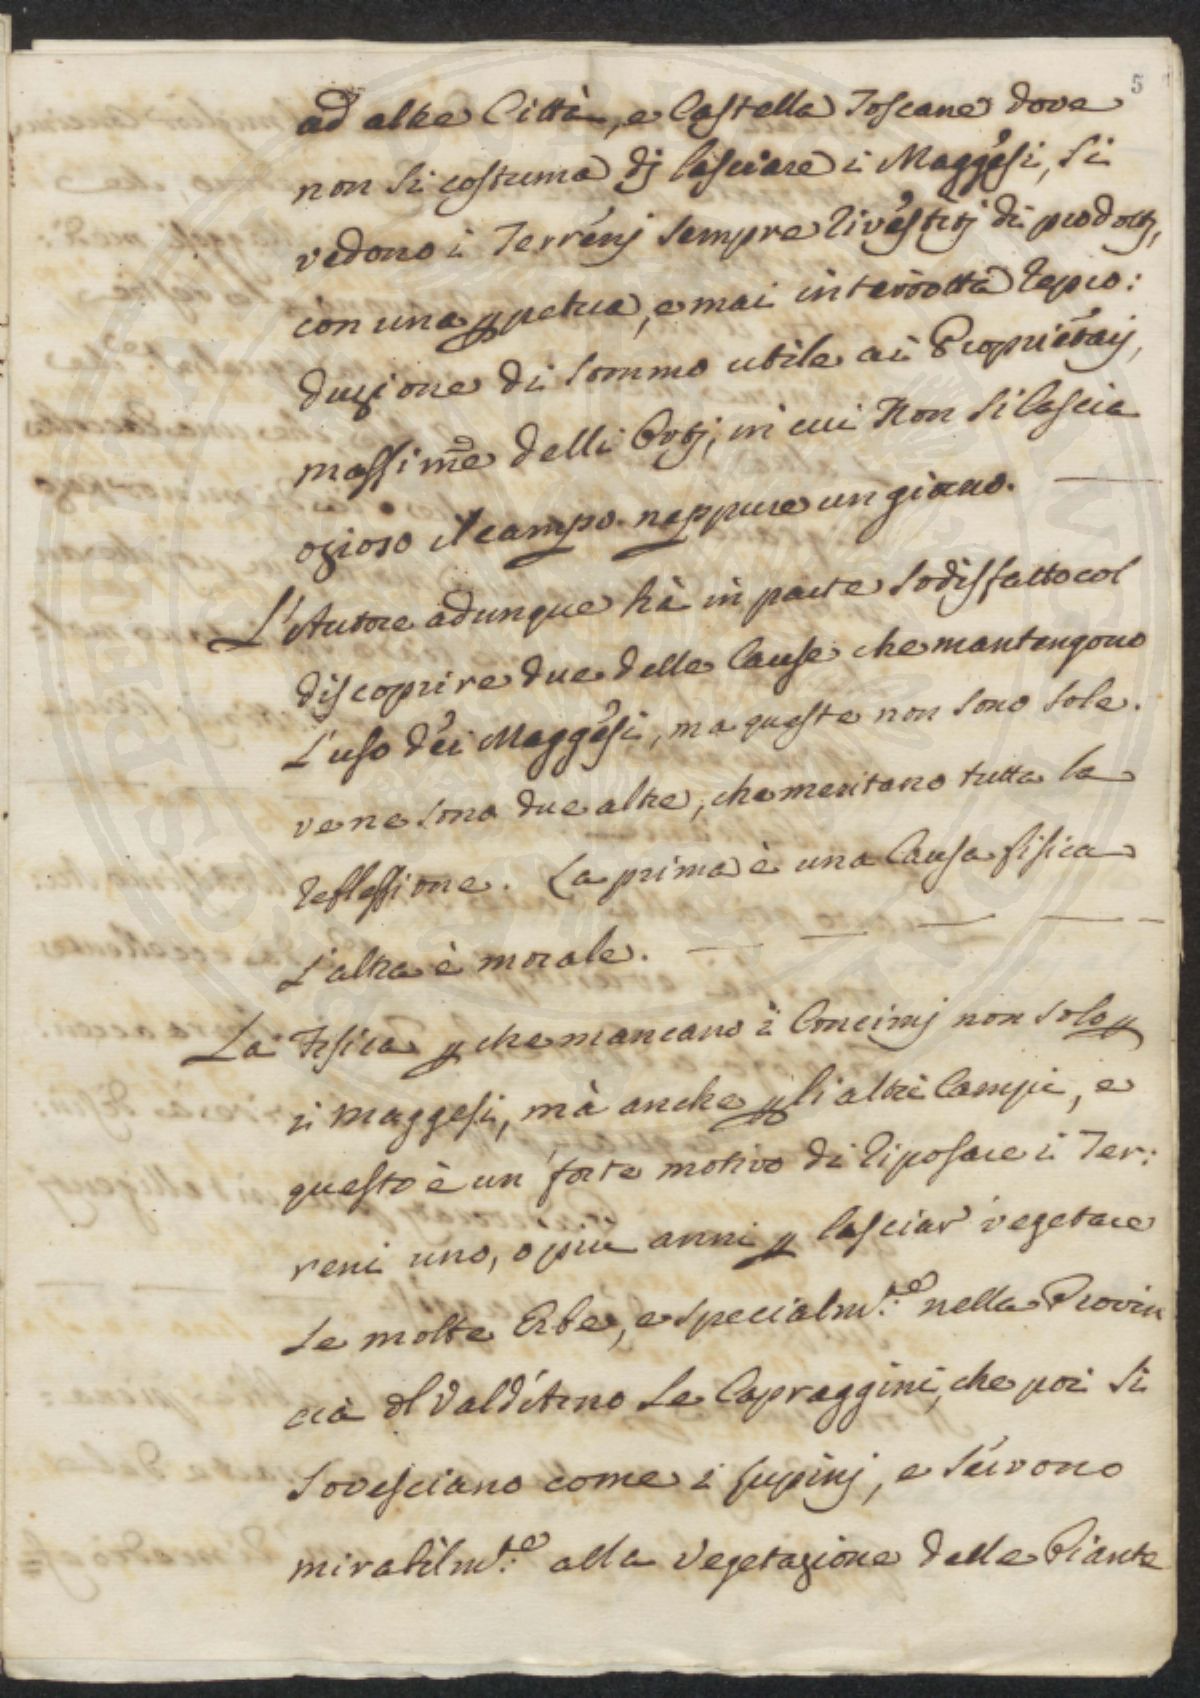 5
ad altre Città, e Castella Toscane dove
non si costuma dj lasciare i Maggesi, si
vedono i Terrenj sempre rivestitj di prodottj,
con una ꝑpetua, e mai interrotta repro:
duzione di sommo utile ai Proprietarj,
massime delli Ortj, in cui non si lascia
ozioso il campo neppure un giorno.
L'Autore adunque hà in parte sodisfatto col
discoprire due delle Cause che mantengono
l'uso dei Maggesi, ma queste non sono sole.
ve ne sono due altre, che meritano tutta la
reflessione. La prima è una Causa fisica
L'altra è morale.
La Fisica ꝑche mancano i Concimj non solo ꝑ
i maggesi, mà anche ꝑ li altri Campi, e
questo è un forte motivo di riposare i Ter:
reni uno, o più anni ꝑ lasciar vegetare
le molte Erbe, e specialm.te nella Provin
cia dl Valdarno le Capraggini, che poi si
sovesciano come i lupinj, e servono
mirabilm.te alla vegetazione delle Piante